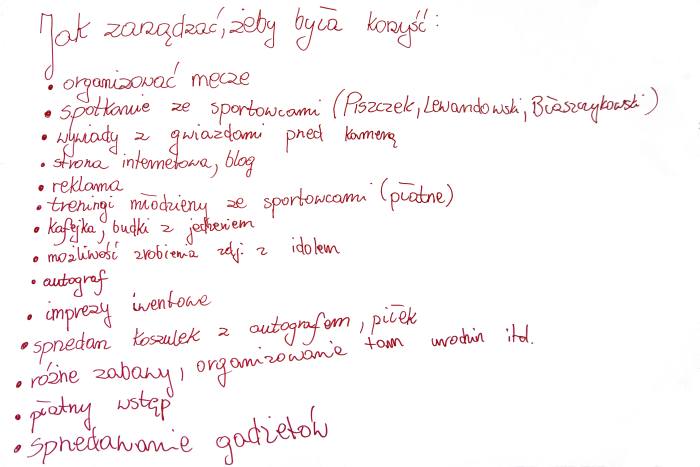 Jak zarządzać, żeby była korzyść:
• organizować mecze
• spotkanie ze sportowcami (Piszczek, Lewandowski, Błaszczykowski)
• wywiady z gwiazdami przed kamerą
• strona internetowa, blog
• reklama
• treningi młodzieży ze sportowcami (płatne)
• kafejka, budki z jedzeniem
• możliwość zrobienia zdj. z idolem
• autograf
• imprezy iwentowe
• sprzedaż koszulek z autografem, piłek
• różne zabawy, organizowanie tam urodzin itd.
• płatny wstęp
• sprzedawanie gadżetów